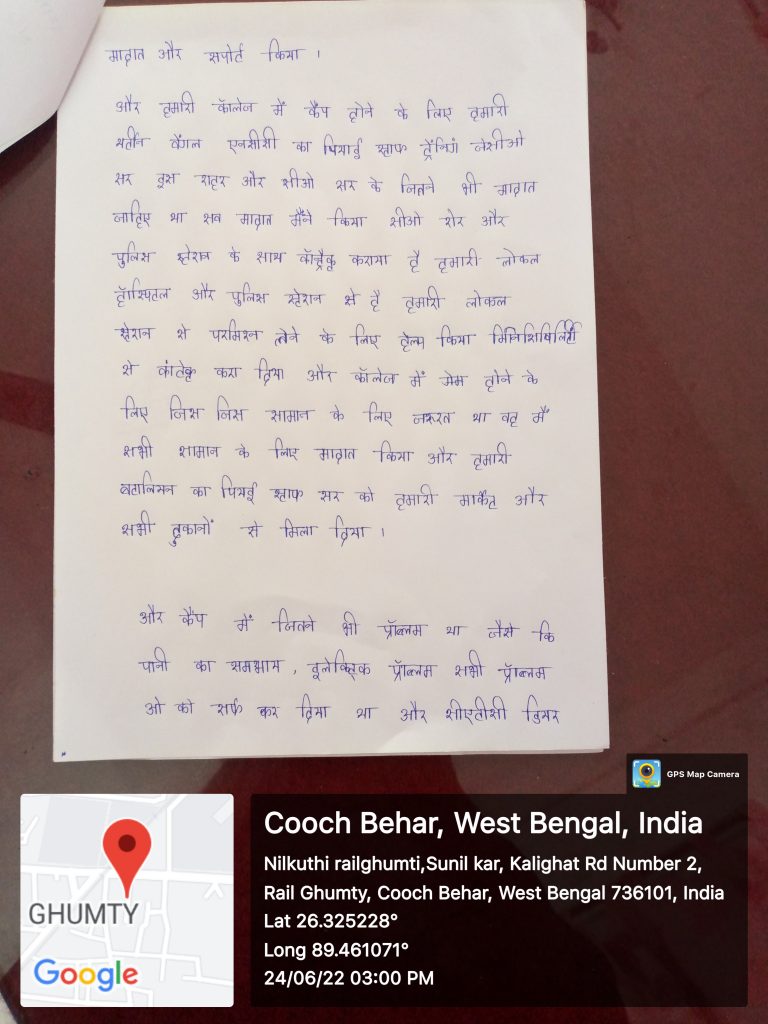 मादात और सपोर्ट किया ।
और हमारी कॉलेज में कैंप होने के लिए हमारी
बेंगल एनसीसी का पिआई स्टाफ ट्रेंनिगं जेसीओ
सर इस शहर और सीओ सर के जितने भी मादात
चाहिए था सब मादात मैंने किया सीओ शेर और
पुलिस स्टेशन के साथ कराया है हमारी लोकल
हॉस्पिटल और पुलिस स्टेशन से है हमारी लोकल
स्टेशन से परमिशन लेने के लिए हेल्प किया
से करा दिया और कॉलेज में मेम होने के
लिए जिस जिस सामान के लिए जरुरत था वह मैं
सभी सामान के लिए मादात किया और हमारी
बटालियन का पिआई स्टाफ सर को हमारी मार्केट और
सभी दुकानों से मिला दिया ।
और कैंप में जितने भी प्रॉब्लम था जैसे कि
पानी का समस्याय , इलेक्ट्रिक प्रॉब्लम सभी प्रॉब्लम
ओ को सर्फ कर दिया था और सीएटीसी डियर
GPS Map Camera
Cooch Behar, West Bengal, India
Nilkuthi railghumti,Sunil kar, Kalighat Rd Number 2,
Rail Ghumty, Cooch Behar, West Bengal 736101, India
Lat 26.325228°
Long 89.461071°
24/06/22 03:00 PM
GHUMTY
Google